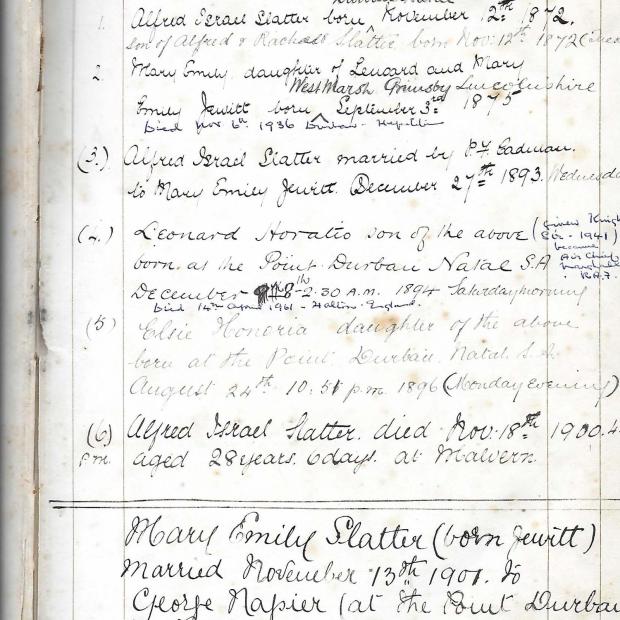 1. Alfred Israel Slatter born November 12th 1872.
son of Alfred & Rachael Slatter born Nov: 12th 1872
2. Mary Emily daughter of Leonard and Mary
West Marsh Grimsby Lincolnshire
Emily Jewitt born ^ September 3rd 1875
Died Nov 6th 1936 Durban
(3.) Alfred Israel Slatter married by P. F. Cadman.
to Mary Emily Jewitt. December 27th 1893. Wednesda
(4.) Leonard Horatio son of the above (given Knigh
Sir - 1941)
became
Air Chief
Marshal
R.A.F.
born at the Point Durban Natal S.A
December 8th 2.30 A.M. 1894 Saturday morning
Died 14th April 1961 - Halton - England
(5) Elsie Honoria daughter of the above
born at the Point Durban. Natal. S.A.
August 24th 10:51 p.m. 1896 (Monday Evening)
(6) Alfred Israel Slatter. died Nov. 18th 1900. 4.
p.m. aged 28 years. 6 days. at Malvern.
Mary Emily Slatter (born Jewitt)
married November 13th 1901. to
George Napier (at the Point Durba